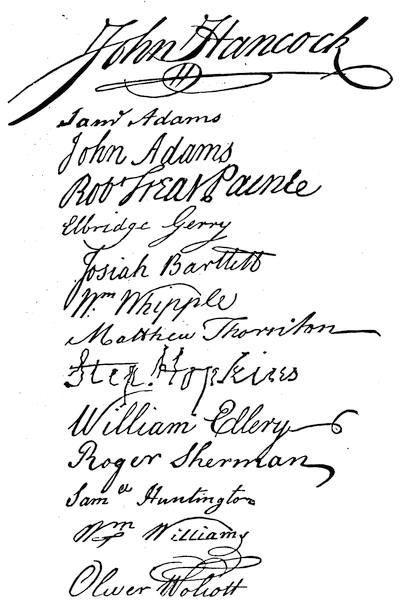 John Hancock
H
Saml Adams
John Adams
Robt Treat Paine
Elbridge Gerry
Josiah Bartlett
Wm Whipple
Matthew Thornton
Step. Hopkins
William Ellery
Roger Sherman
Saml Huntington
Wm Williams
Oliver Wolcott